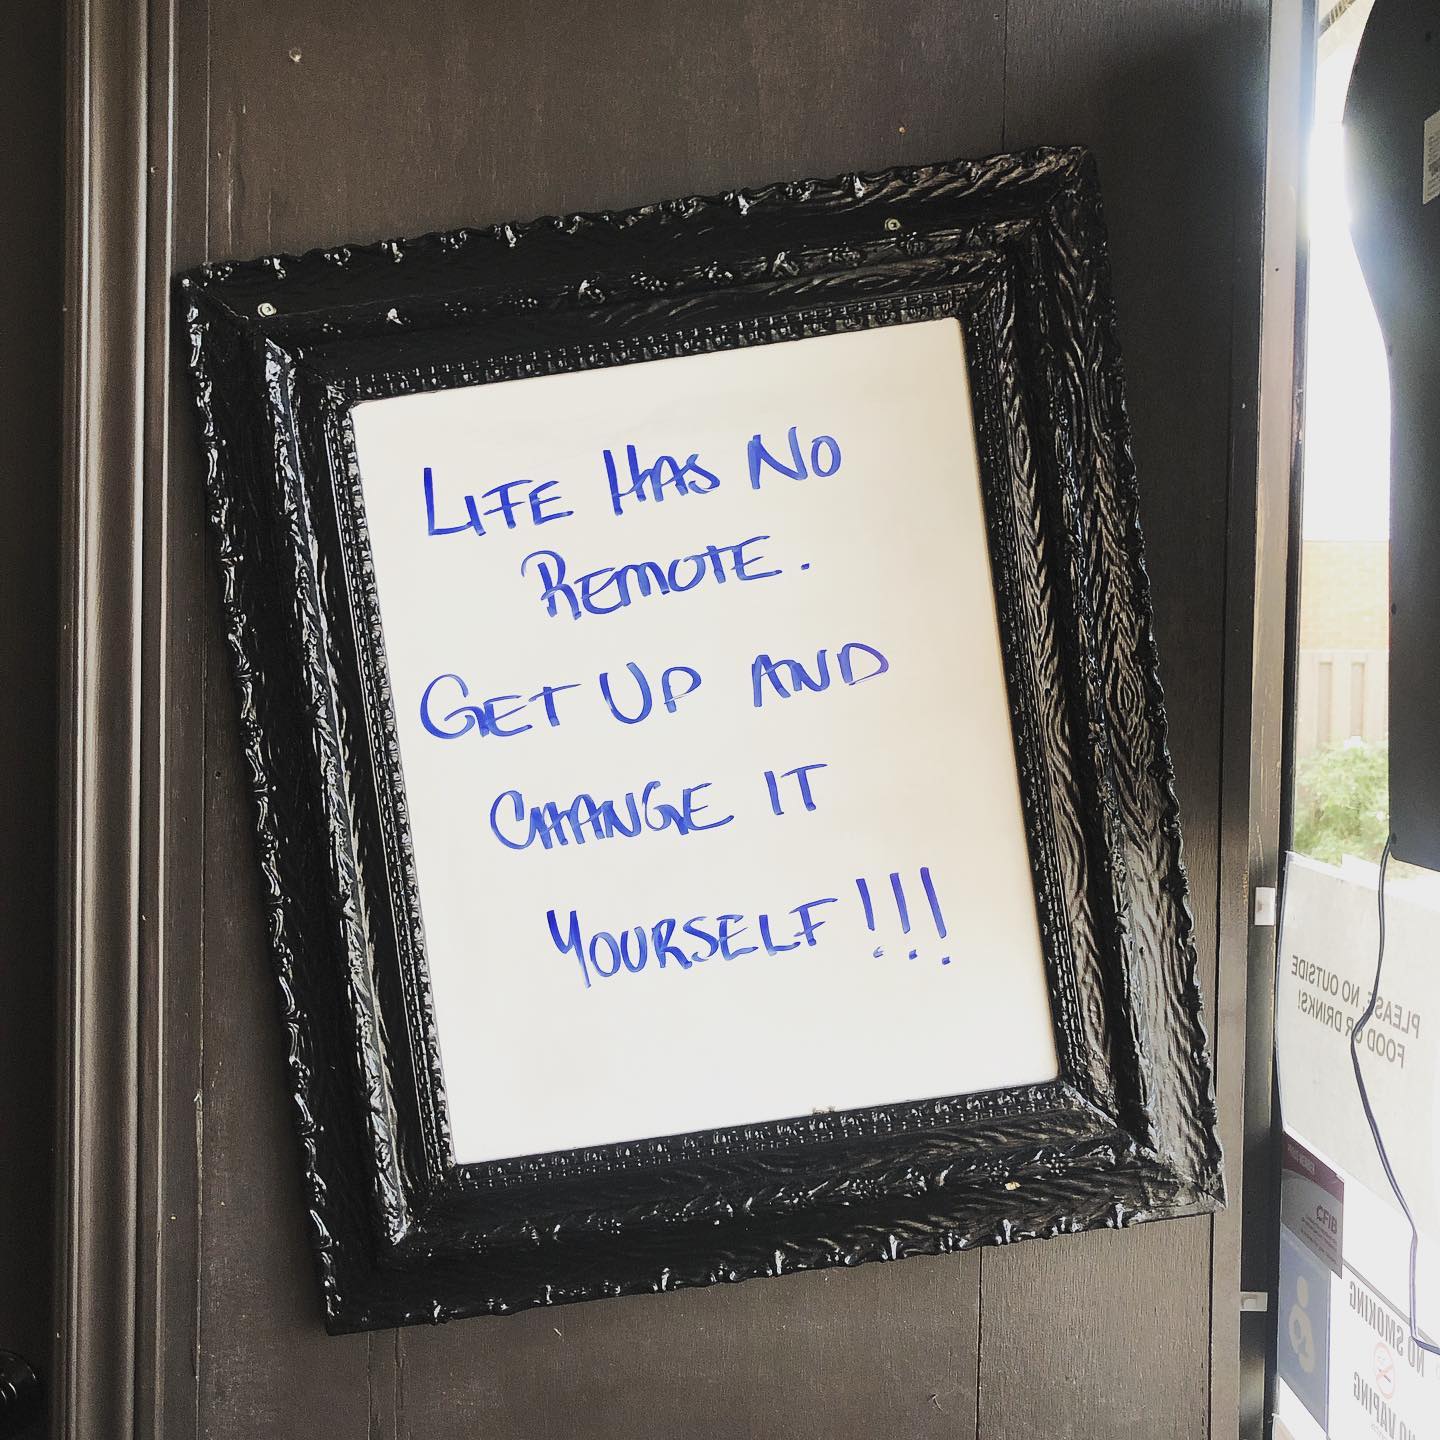 LIFE HAS NO
REMOTE.
GET UP AND
CHANGE IT
YOURSELF!!!
PLEASE, NO OUTSIDE
FOOD OR DRINKS!
CFIB
NO SMOKING
NO VAPING